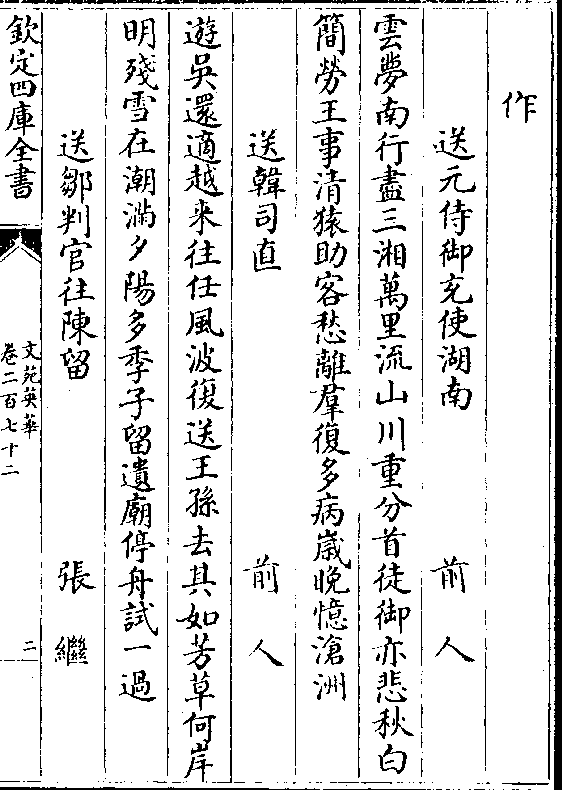 作
送元侍御充使湖南　前人
雲夢南行盡三湘萬里流山川重分首徒御亦悲秋白
簡勞王事清猿助客愁離羣復多病歲晚憶滄洲
送韓司直　前人
遊吳還適越来往任風波復送王孫去其如芳草何岸
明殘雪在潮滿夕陽多季子留遺廟停舟試一過
送鄒判官往陳留　張繼
欽定四庫全書
文苑英華
卷二百七十二
二